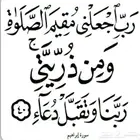 رَبِّ اجْعَلْنِي مُقِيمَ الصَّلَاةِ
وَمِن ذُرِّيَّتِي ۚ
رَبَّنَا وَتَقَبَّلْ دُعَاءِ ﴿٤٠﴾
سورة إبراهيم